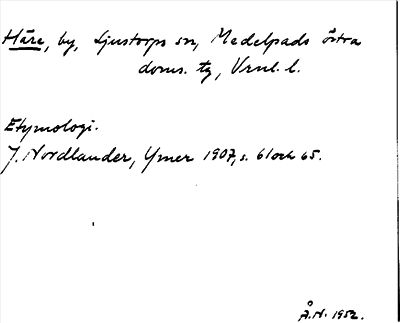 Häre, by, Ljustorps sn, Medelpads östra
doms. tg, Vrnl. l.
Etymologi.
J. Nordlander, Ymer 1907, s. 61 och 65.
Å.N. 1952.